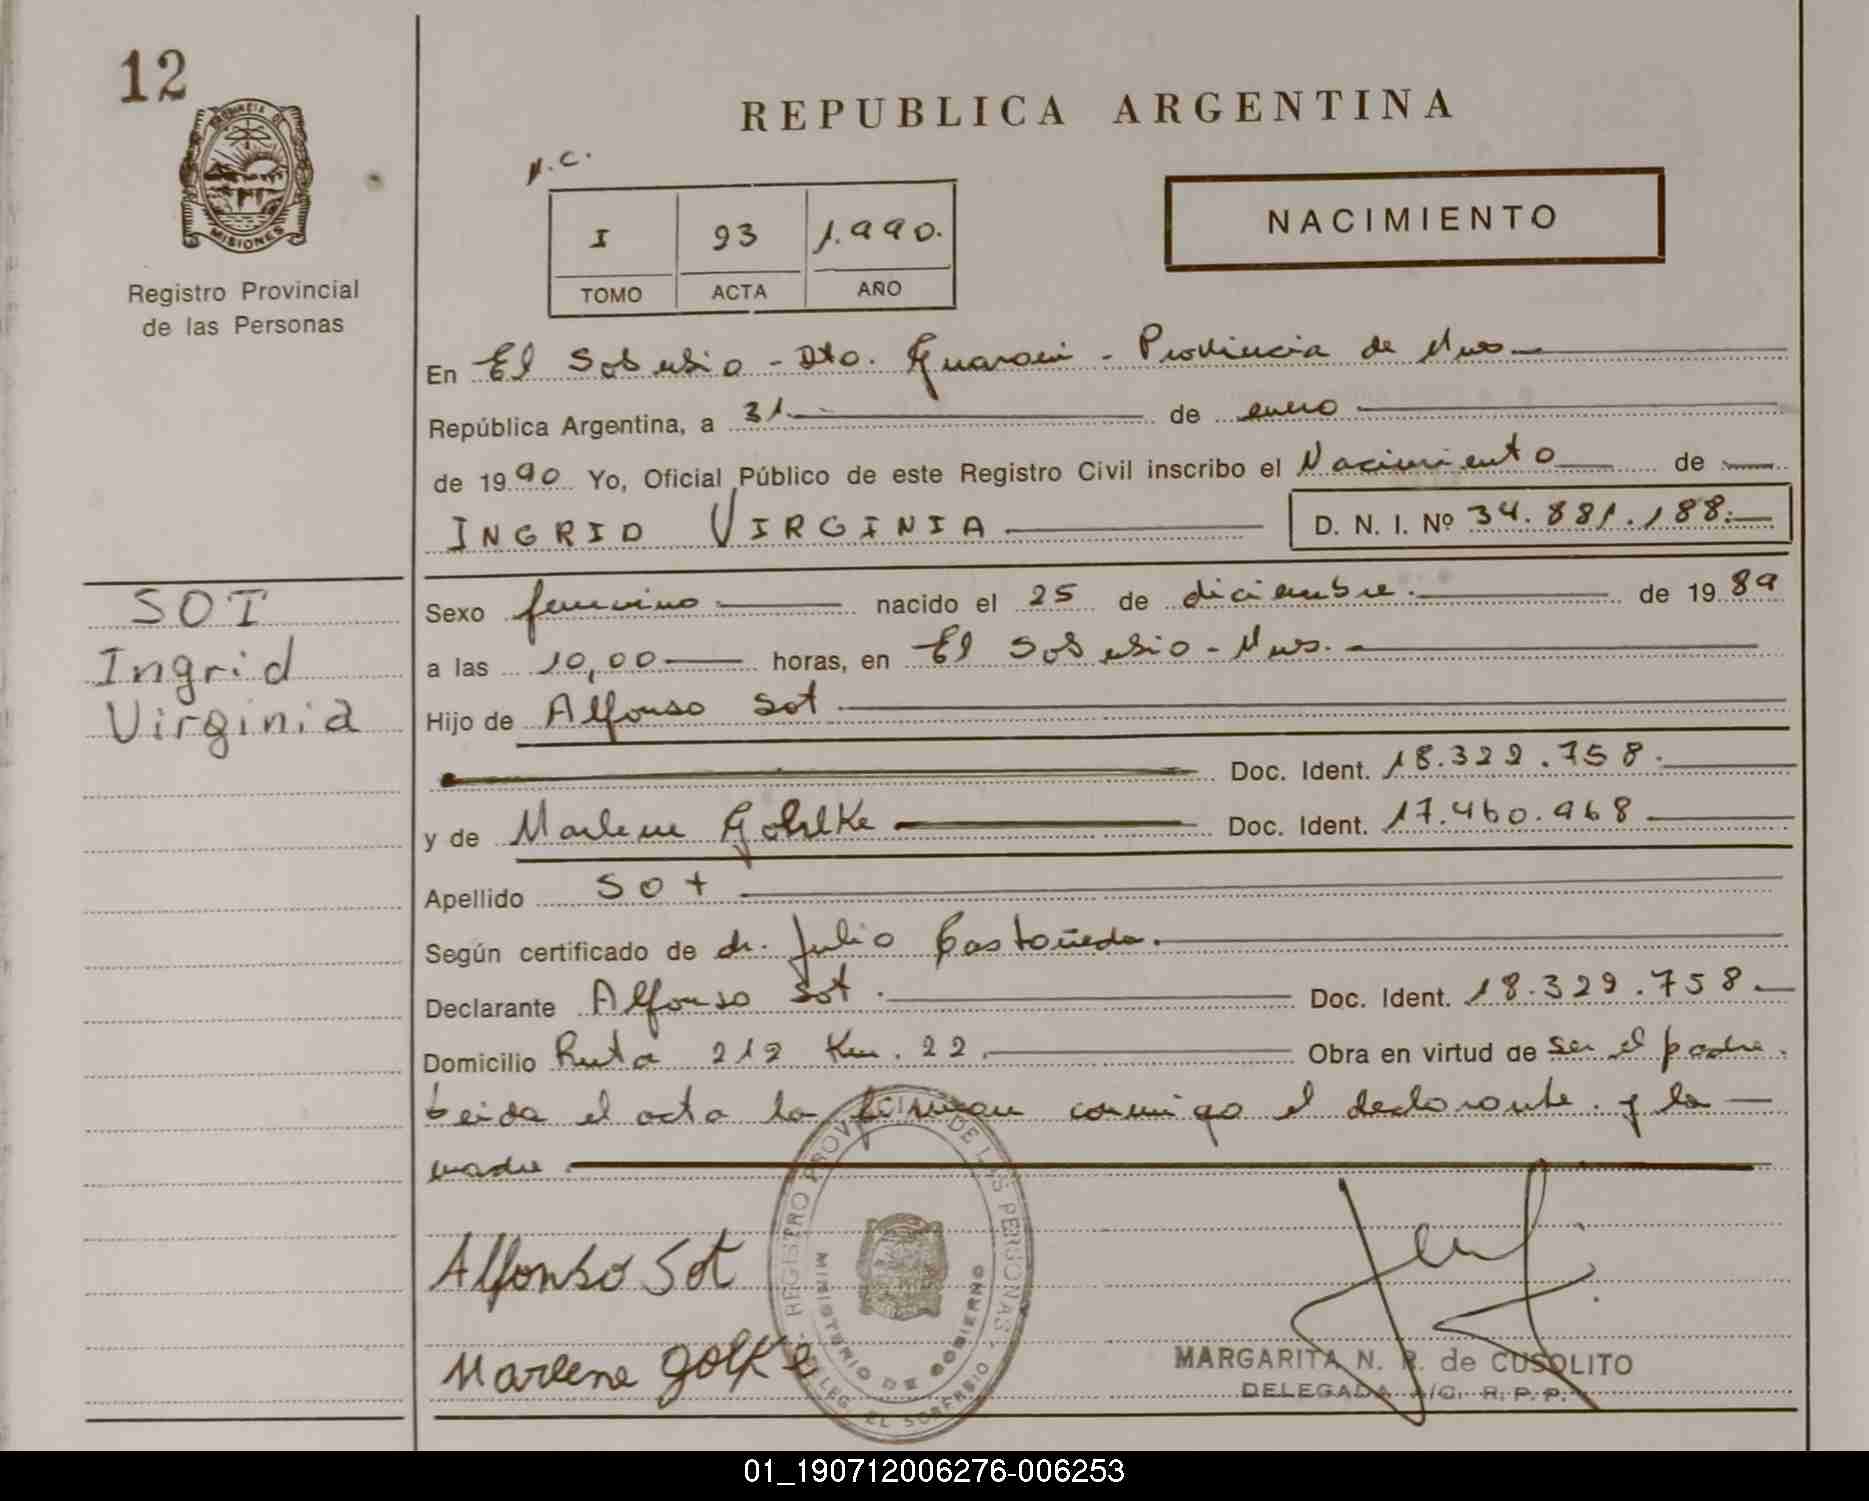 12
PROVINCIA DE
MISIONES
Registro Provincial
de las Personas
REPUBLICA ARGENTINA
N.C.
I 93 1.990.
TOMO ACTA AÑO
NACIMIENTO
En El Soberbio - Dto. Guaraní - Provincia de Mnes
República Argentina, a 31 de enero
de 1990 Yo, Oficial Público de este Registro Civil inscribo el Nacimiento de
INGRID VIRGINIA D. N. I. Nº 34.881.188.
SOT
Ingrid
Virginia
Sexo femenino nacido el 25 de diciembre. de 1989
a las 10,00 horas, en El Soberbio - Mnes.
Hijo de Alfonso Sot
Doc. Ident. 18.329.758.
y de Marlene Gohlke Doc. Ident. 17.460.968
Apellido Sot
Según certificado de dr. Julio Castañeda.
Declarante Alfonso Sot. Doc. Ident. 18.329.758.
Domicilio Ruta 212 Km. 22. Obra en virtud de ser el padre.
Leida el acta la firman conmigo el declarante. y la
madre.
REGISTRO PROVINCIAL DE LAS PERSONAS
MINISTERIO DE GOBIERNO
DELEG. EL SOBERBIO
Alfonso Sot
Marlene Golke
MARGARITA N. R. de CUSOLITO
DELEGADA A/C. R. P. P.
01_190712006276-006253